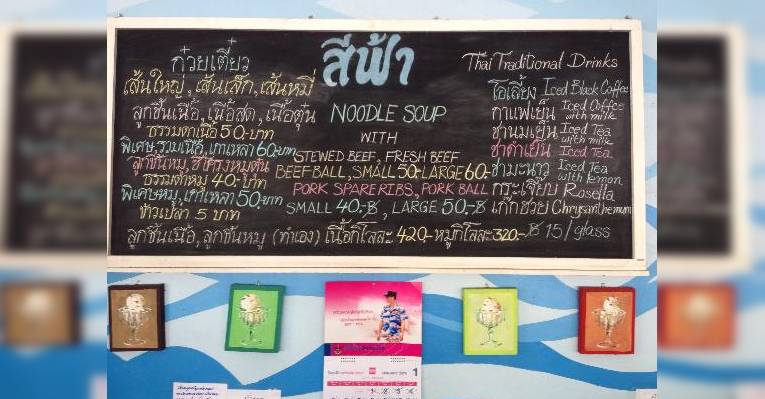 สีฟ้า
ก๋วยเตี๋ยว
เส้นใหญ่, เส้นเล็ก, เส้นหมี่
ลูกชิ้นเนื้อ, เนื้อสด, เนื้อตุ๋น
ธรรมดาเนื้อ 50.-บาท
พิเศษ, รวมเนื้อ, เกาเหลา 60.-บาท
ลูกชิ้นหมู, ซี่โครงหมูตุ๋น
ธรรมดาหมู 40.-บาท
พิเศษหมู, เกาเหลา 50.-บาท
ข้าวเปล่า 5 บาท
NOODLE SOUP
WITH
STEWED BEEF, FRESH BEEF
BEEF BALL, SMALL 50.- LARGE 60.-
PORK SPARERIBS, PORK BALL
SMALL 40.-฿, LARGE 50.-฿
Thai Traditional Drinks
โอเลี้ยง Iced Black Coffee
กาแฟเย็น Iced Coffee with milk
ชานมเย็น Iced Tea with milk
ชาดำเย็น Iced Tea
ชามะนาว Iced Tea with lemon
กระเจี๊ยบ Rosella
เก๊กฮวย Chrysanthemum
฿ 15/glass
ลูกชิ้นเนื้อ, ลูกชิ้นหมู (ทำเอง) เนื้อกิโลละ 420.- หมูกิโลละ 320.-
1